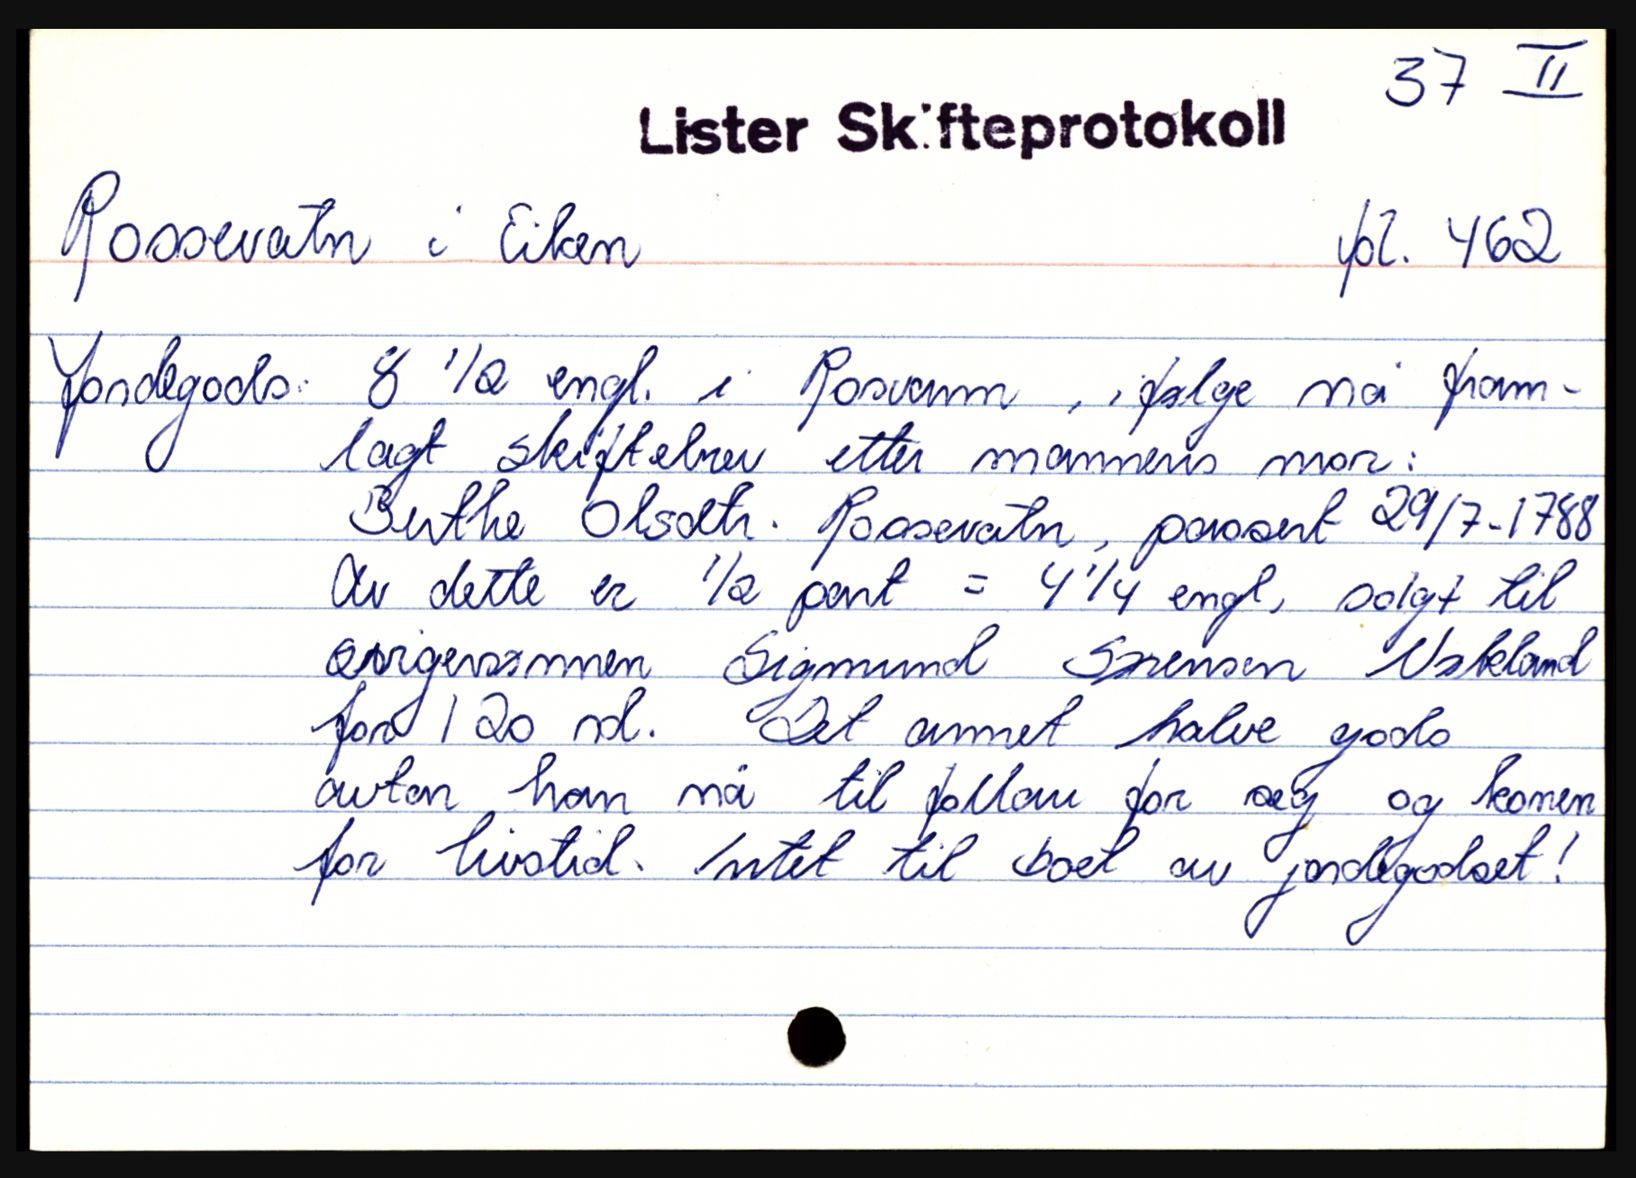 37 II
Lister Skifteprotokoll
Rossevatn i Eiken fol. 462
Jordegods: 8 1/2 engl. i Rosvann, ifølge nå fram-
lagt skiftebrev etter mannens mor:
Berthe Olsdtr. Rossevatn, passert 29/7-1788
Av dette er 1/2 part = 4 1/4 engl, solgt til
svigersønnen Sigmund Sørensen
for 120 rd. Det annet halve gods
avtar han nå til follau for seg og konen
for livstid. Intet til boet av jordegodset!